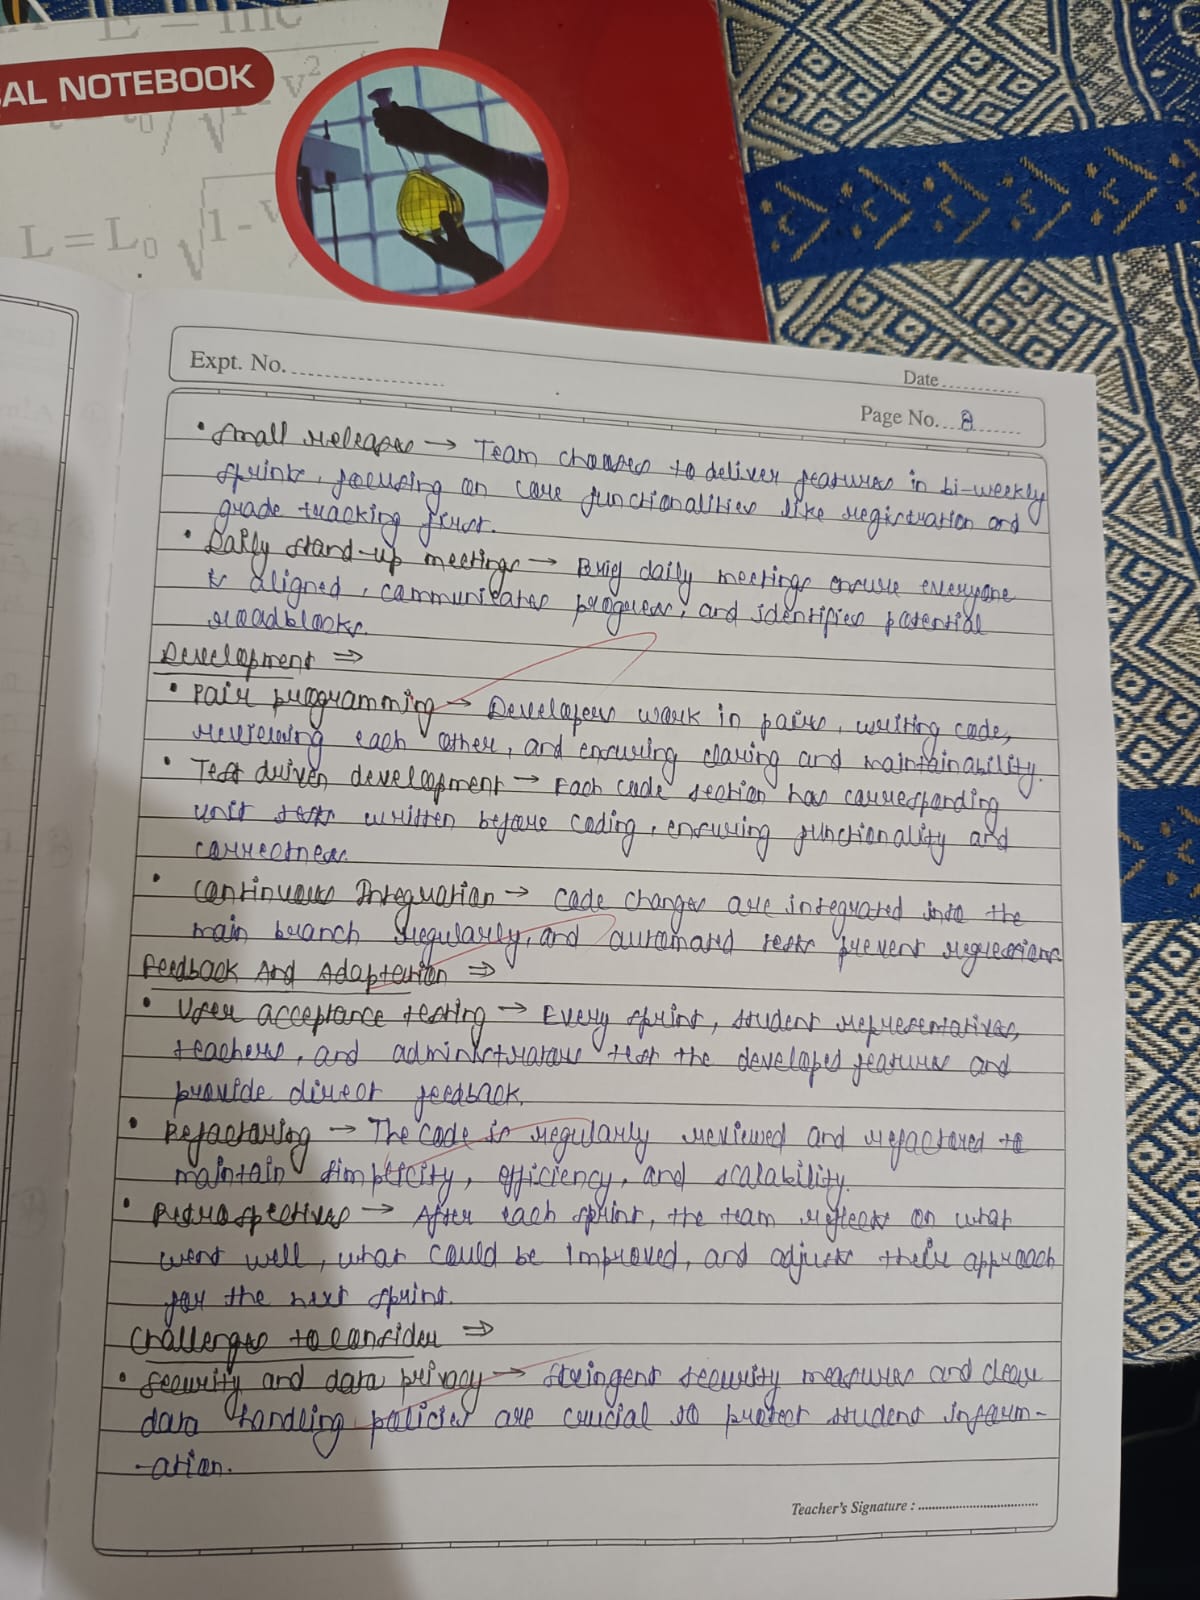 E = mc
AL NOTEBOOK
L = L₀ √1- v
Expt. No.
Date
Page No. 2
• Small releases → Team chooses to deliver features in bi-weekly
sprints, focusing on core functionalities like registration and
grade tracking first.
• Daily stand-up meetings → Brief daily meetings ensure everyone
is aligned, communicates progress, and identifies potential
roadblocks.
Development ⇒
• Pair programming → Developers work in pairs, writing code,
reviewing each other, and ensuring claring and maintainability.
• Test driven development → Each code section has corresponding
unit tests written before coding, ensuring functionality and
correctness.
• Continuous Integration → Code changes are integrated into the
main branch regularly, and automated tests prevent regressions
Feedback And Adaptation ⇒
• User acceptance testing → Every sprint, student representatives,
teachers, and administrators test the developed features and
provide direct feedback.
• Refactoring → The code is regularly reviewed and refactored to
maintain simplicity, efficiency, and scalability.
• Retrospectives → After each sprint, the team reflects on what
went well, what could be improved, and adjusts their approach
for the next sprint.
Challenges to consider ⇒
• Security and data privacy → Stringent security measures and clear
data handling policies are crucial to protect student inform-
-ation.
Teacher's Signature :